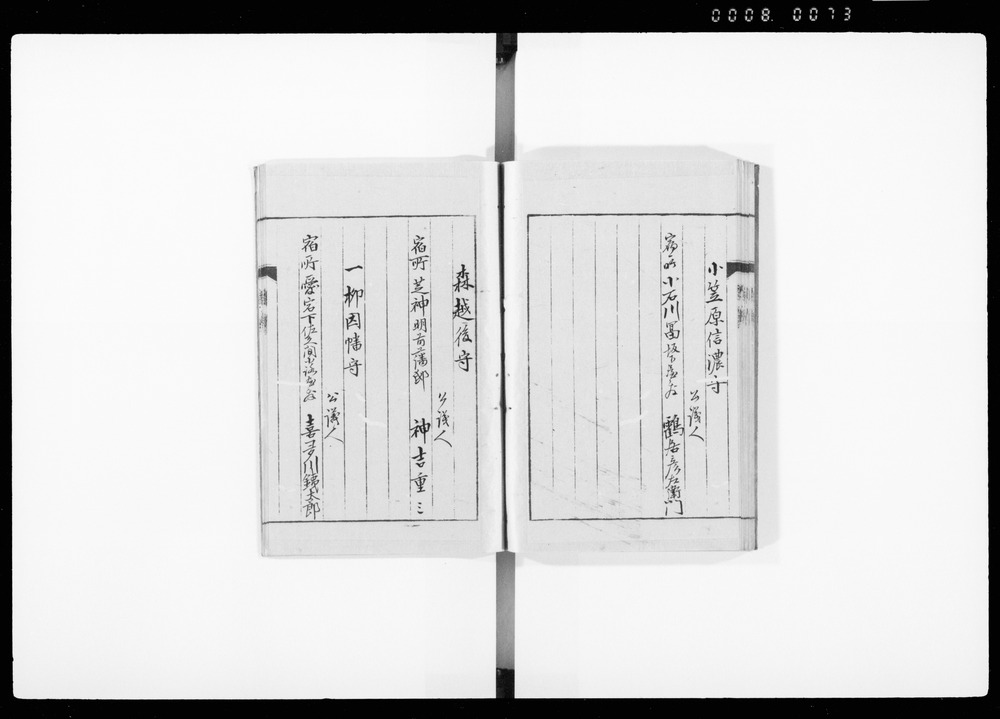 0008.0073
小笠原信濃守
公議人
宿所小石川冨坂下屋敷
鶴居彦左衛門
森越後守
公議人
宿所芝神明前藩邸
神吉重三
一柳因幡守
公議人
宿所愛宕下佐久間小路
喜多川鉄太郎